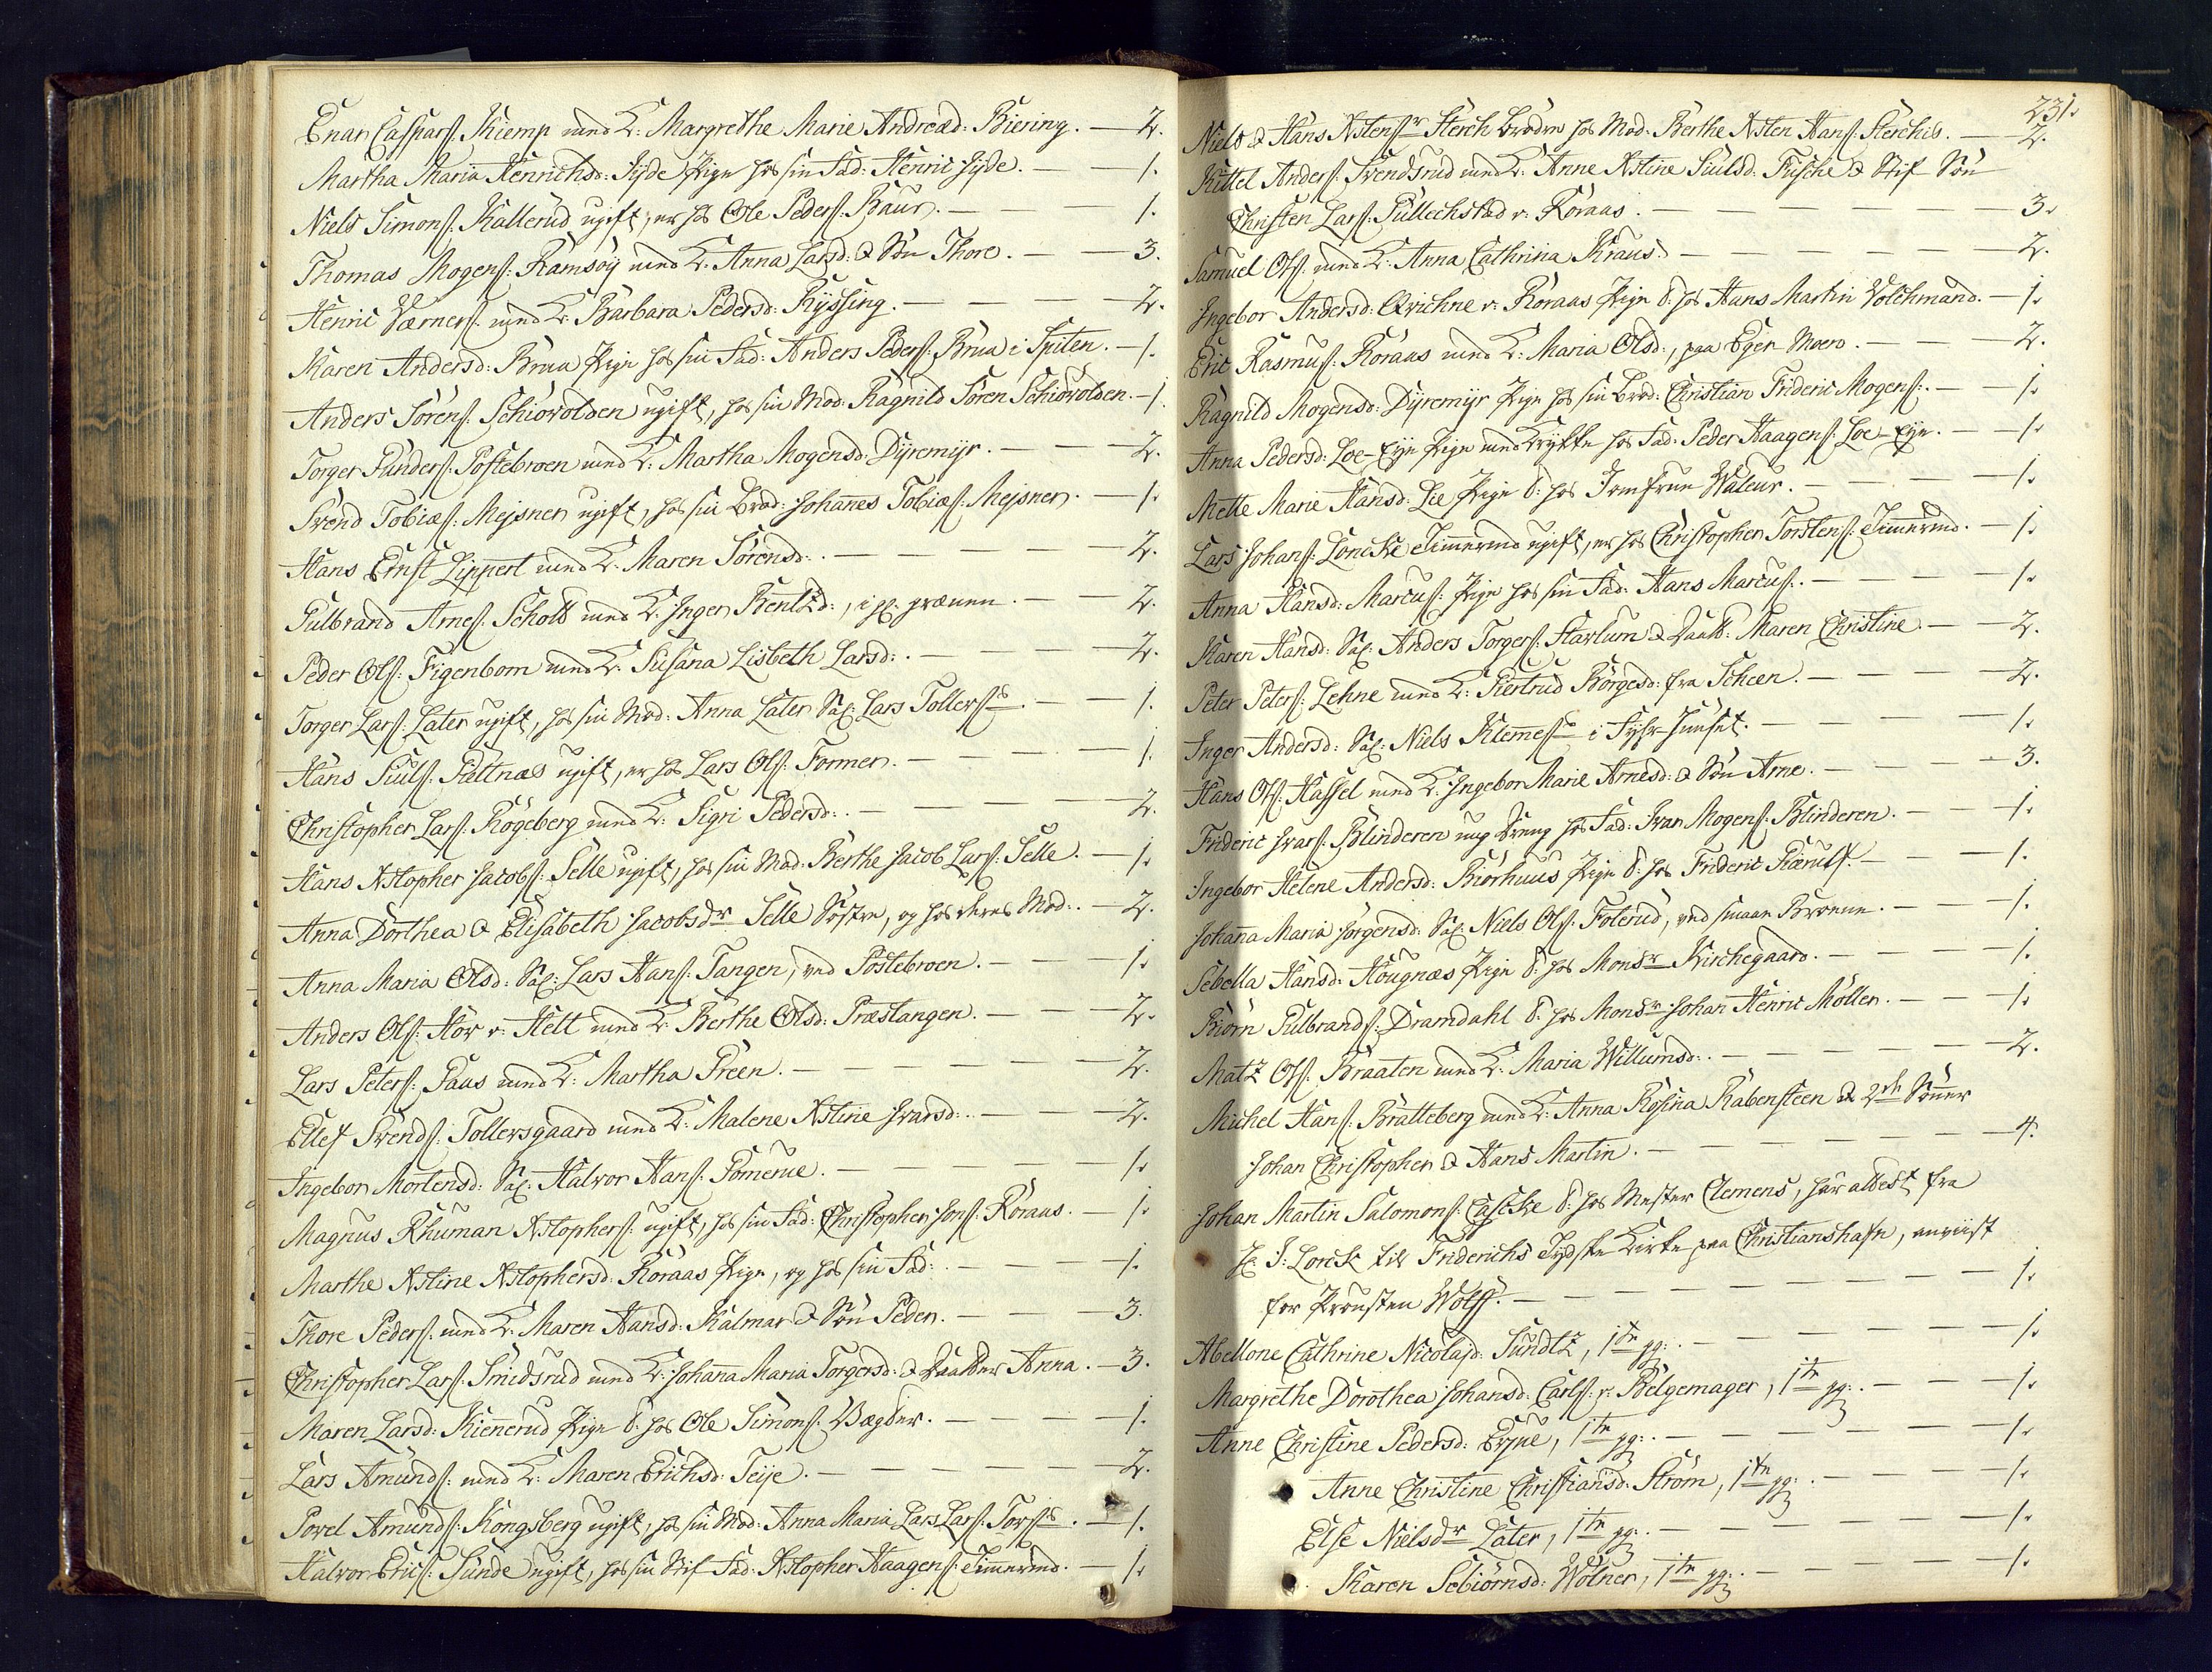 Enar Caspars: Kiemp med K: Margrethe Marie Andreæd: Biering. — 2.
Martha Maria Henrichsd: Jyde Pige hos sin Fad: Henric Jyde. — 1.
Niels Simons: Kallerud ugift, er hos Ole Peders: Baur. — 1.
Thomas Mogens: Ramsøy med K: Anna Larsd: & Søn Thore. — 3.
Henric Værners: med K: Barbara Pedersd: Ryssing. — 2.
Karen Andersd: Brua Pige hos sin Fad: Anders Peders: Brua i Spiten. — 1.
Anders Sørens: Schiørvolden ugift, hos sin Mod: Ragnild Søren Schiørvolden. — 1.
Torger Gunders: Postebroen med K: Martha Mogensd: Dyremyr. — 2.
Svend Tobiæs: Mejsner ugift, hos sin Brod: Johannes Tobiæs: Mejsner. — 1.
Hans Ernst Lippert med K: Maren Sørensd: — 2.
Gulbrand Arnes: Scholt med K: Inger Bentzd:, — 2.
Peder Ols: Figenbom med K: Susana Lisbeth Larsd: — 2.
Torger Lars: Later ugift, hos sin Mod: Anna Later Lars Tollefs: — 1.
Hans Giuls: Gultnæs ugift, er hos Lars Ols: Former. — 1.
Christopher Lars: Røgeberg med K: Sigri Pedersd: — 2.
Hans Xstopher Jacobs: Selle ugift, hos sin Mod: Berthe Jacob Lars: Selle. — 1.
Anna Dorthea & Elisabeth Jacobsdr Selle Søstre, og hos deres Mod: — 2.
Anna Maria Olsd: Lars Hans: Tangen, ved Postebroen. — 1.
Anders Ols: Hov v. Helt med K: Berthe Olsd: Præstangen. — 2.
Lars Peters: Paus med K: Martha Preen. — 2.
Ellef Svends: Tollefsgaard med K: Malene Xstine Ivarsd: — 2.
Ingebor Mortensd: Halvor Hans: Pomerue. — 1.
Magnus Rhuman Xstophers: ugift, hos sin Fad: Christopher Jons: Roraas. — 1.
Marthe Xstine Xstophersd: Roraas Pige, og hos sin Fad: — 1.
Thore Peders: med K: Maren Hansd: Kalmar & Søn Peder. — 3.
Christopher Lars: Smedsrud med K: Johanna Maria Torgersd: & Daatter Anna. — 3.
Maren Larsd: Kiennerud Pige d: hos Ole Simons: Vægter. — 1.
Lars Amunds: med K: Maren Erichsd: Teije. — 2.
Povel Amunds: Kongsberg ugift, hos sin Mod: Anna Maria Lars Lars: — 1.
Halvor Erics: Sunde ugift, hos sin Stif Fad: Xstopher Haagens: Timmermd. — 1.
231.
Niels & Hans Xstens: Sterch Brødre hos Mod: Berthe Xsten Hans: Sterches. — 2.
Kittel Anders: Svendsrud med K: Anne Xstine Giulsd: Fische & Stif Søn
Christen Lars: Gullichstad v. Roraas. — 3.
Samuel Ols: med K: Anna Cathrina Kraus: — 2.
Ingebor Andersd: Qvichne v. Roraas Pige d: hos Hans Martin Volchmand. — 1.
Eric Rasmus: Roraas med K: Maria Olsd:, paa Eger Moen. — 2.
Ragnild Mogensd: Dyremyr Pige hos sin Brod: Christian Frideric Mogens: — 1.
Anna Pedersd: Loe-Eje Pige med Krykke hos Fad: Peder Haagens: Loe-Eje. — 1.
Mette Marie Hansd: Lie Pige d: hos Jomfrue Waleur. — 1.
Lars Johans: Loncke Timmermd ugift, er hos Christopher Torstens: Timmermd. — 1.
Anna Hansd: Marcus: Pige hos sin Fad: Hans Marcus: — 1.
Karen Hansd: Anders Torgers: Starlum & Daatt: Maren Christine. — 2.
Peter Peters: Lehne med K: Giertrud Børgesd: fra Scheen. — 2.
Inger Andersd: Niels Klemes: i — 1.
Hans Ols: Hassel med K: Ingebor Marie Arnesd: & Søn Arne. — 3.
Frideric Ivars: Blinderen ung Dreng hos Fad: Ivar Mogens: Blinderen. — 1.
Ingebor Helene Andersd: Biørhuus Pige d: hos Frideric Piærulf. — 1.
Johanna Maria Jørgensd: Niels Ols: Foterud, ved smaae Broenne. — 1.
Sebella Hansd: Hougnæs Pige d: hos Monsr Kirchegaard. — 1.
Biørn Gulbrands: Dramdahl d: hos Monsr Johan Henric Møller. — 1.
Matz Ols: Braaten med K: Maria Willumsd: — 2.
Michel Hans: Bratteberg med K: Anna Rosina Rabensteen & 2de Sønner
Johan Christopher & Hans Martin. — 4.
Johan Martin Salomons: Cascke d: hos Mester Clemens, har attest fra
H: J: Lorck til Friderichs Tydske Kirke paa Christianshafn, anviist
for Provsten Wolff. — 1.
Abellone Cathrine Nicolajd: Sundtz, 1te gg: — 1.
Margrethe Dorothea Johansd: Carls: v. Belgemager, 1te gg: — 1.
Anne Christine Pedersd: Erjue, 1te gg: — 1.
Anne Christine Christiansd: Strøm, 1te gg: — 1.
Else Nielsdr Later, 1te gg: — 1.
Karen Sebiørnsd: Wølner, 1te gg: — 1.